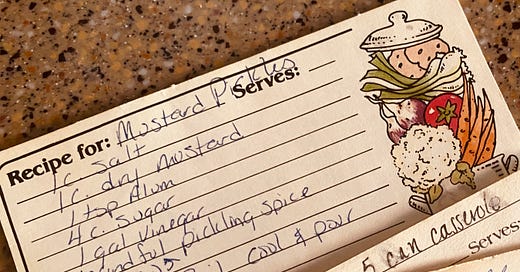 Recipe for: Mustard Pickles
Serves:
1 c. Salt
1 c. dry mustard
1 tsp Alum
4 c. Sugar
1 gal Vinegar
pickling spice
cool & pour
5 can casserole
Serves: